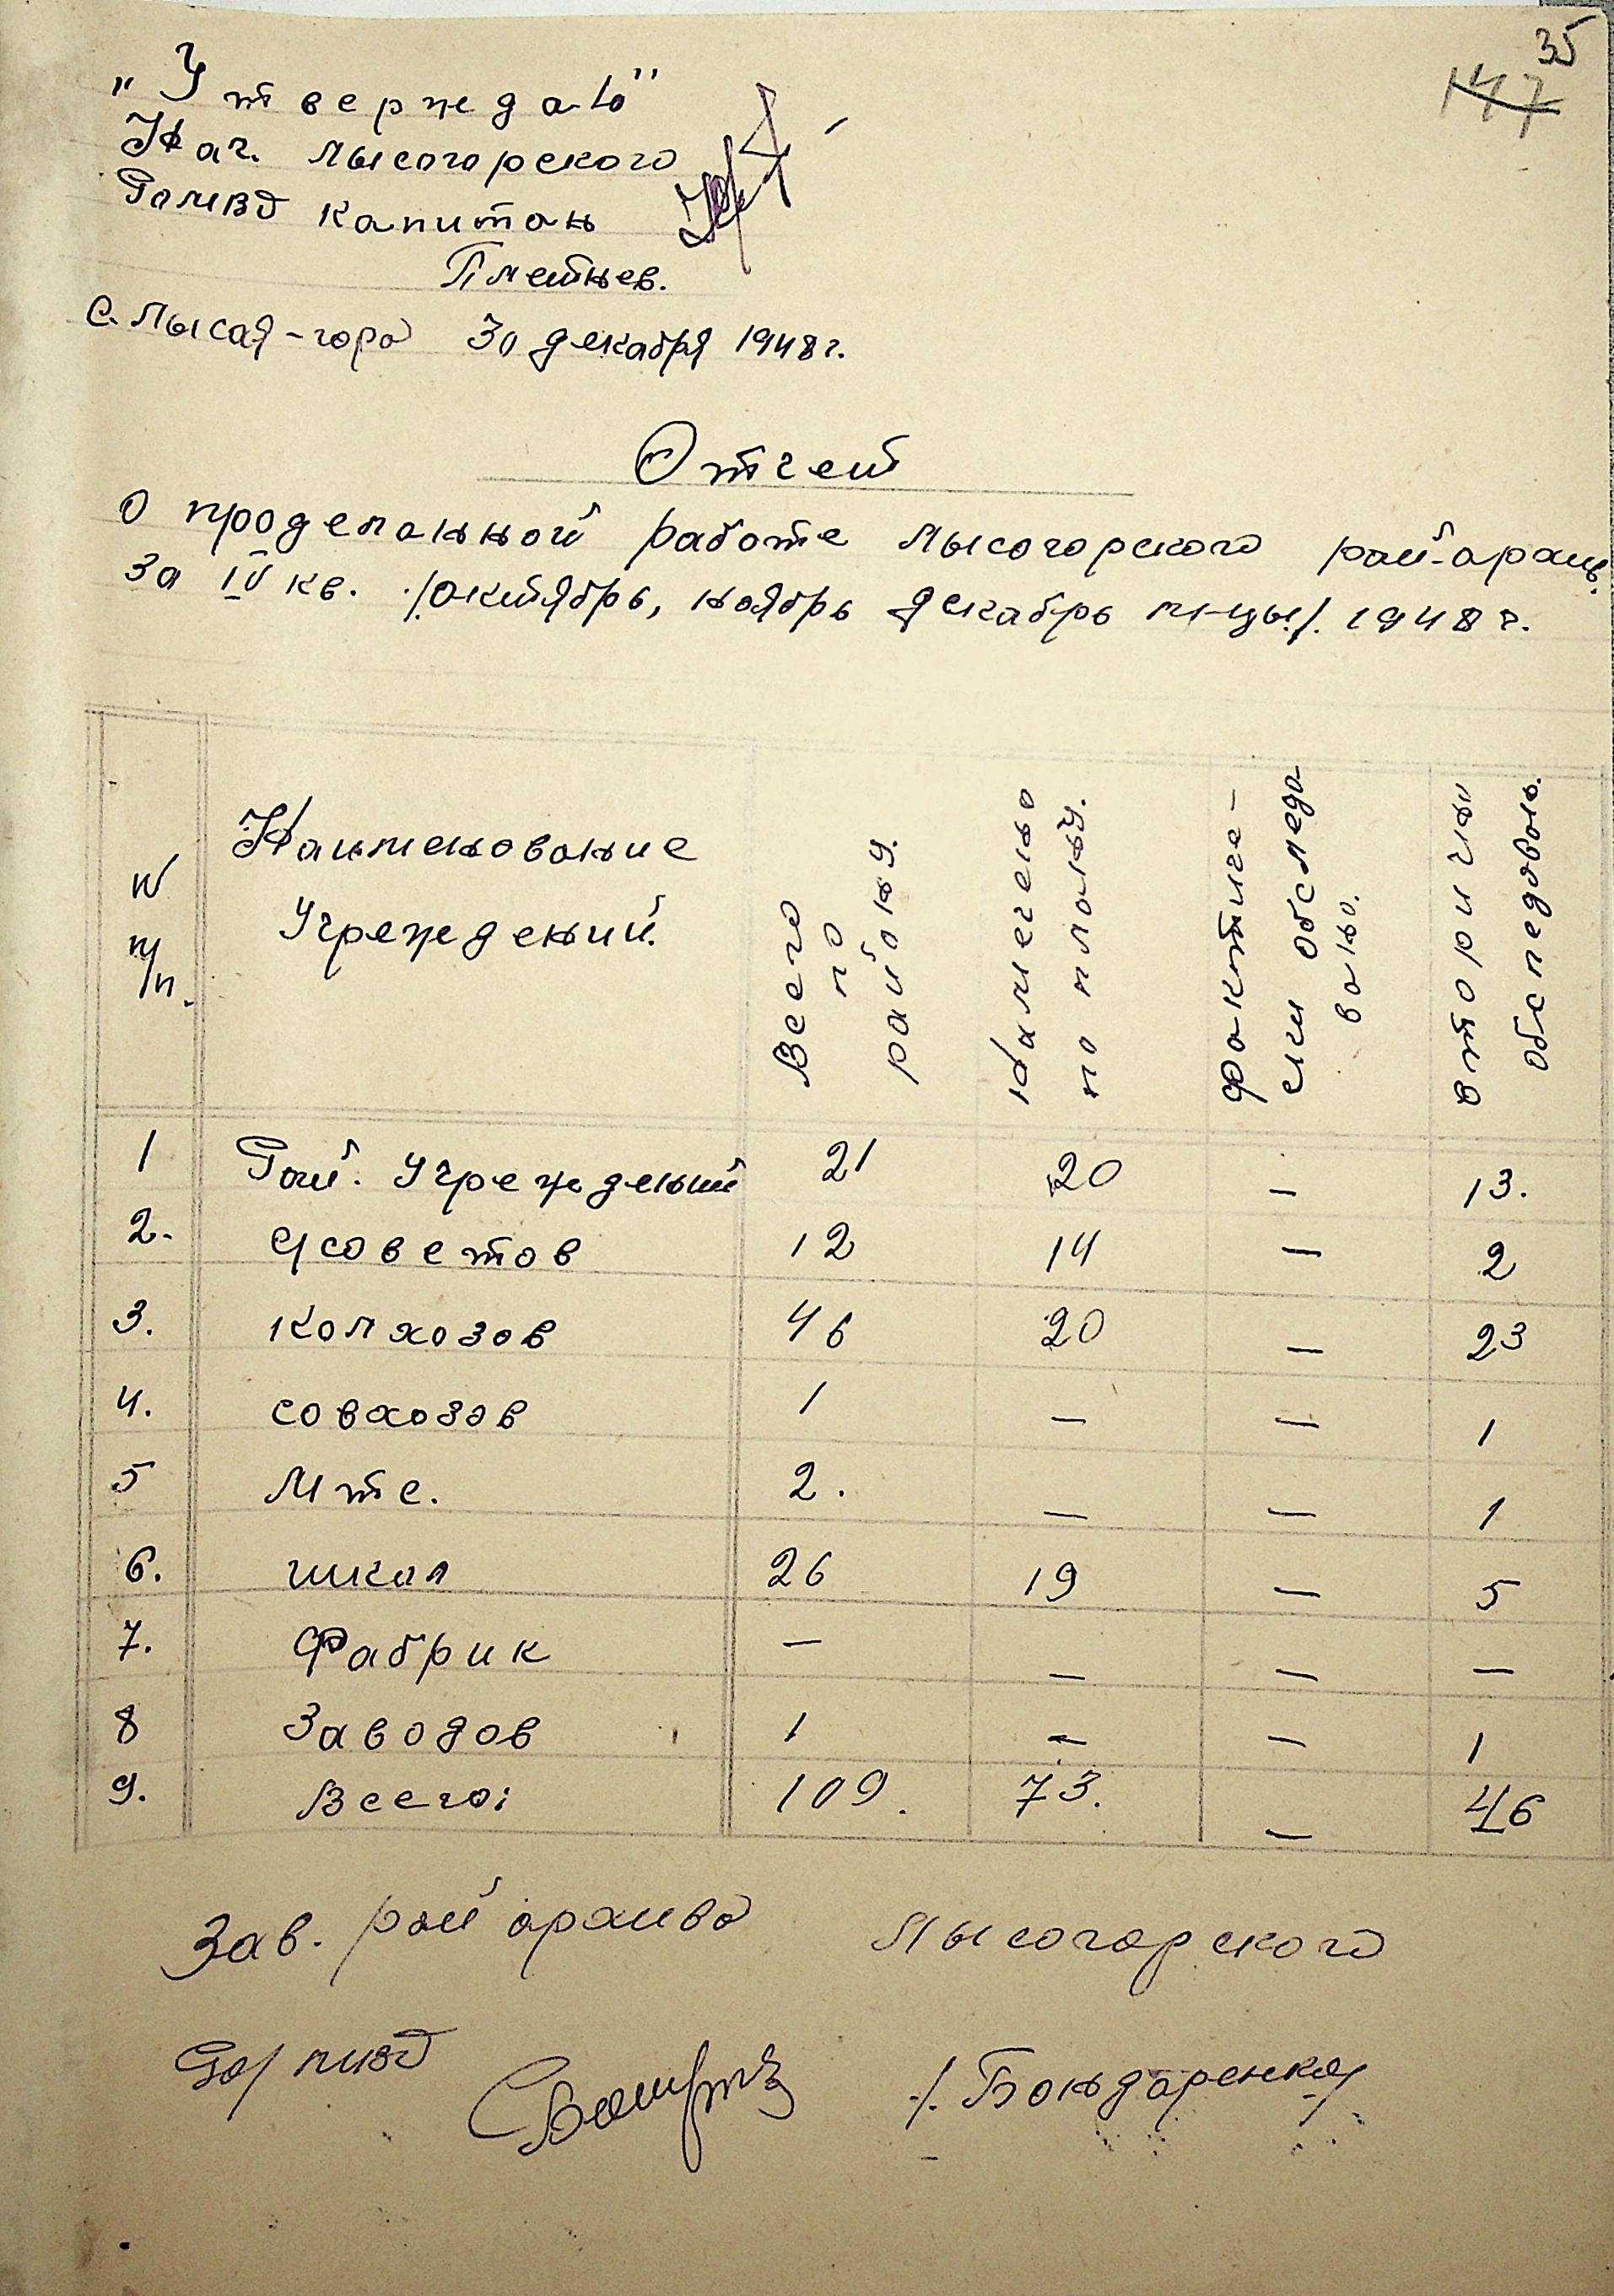 35
147
„Утверждаю"
Нач. Лысогорского
РоМВД капитан
Плетнев.
с. Лысая-гора 30 декабря 1948 г.
Отчет
о проделанной работе Лысогорского рай-архив.
за IV кв. /.октябрь, ноябрь декабрь м-цы/. 1948 г.
N п/п. Наименование Учреждений. Всего по району. Намечено по плану. Фактиче-ски обследовано. вторичны обследовань.
1 Рай. Учреждений 21 20 — 13.
2. с/советов 12 14 — 2
3. колхозов 46 20 — 23
4. совхозов 1 — — 1
5 Мтс. 2. — — 1
6. школ 26 19 — 5
7. Фабрик — — — —
8 Заводов 1 — — 1
9. Всего: 109. 73. — 46
Зав. рай архива Лысогорского
Ро/МВД /. Бондаренко/